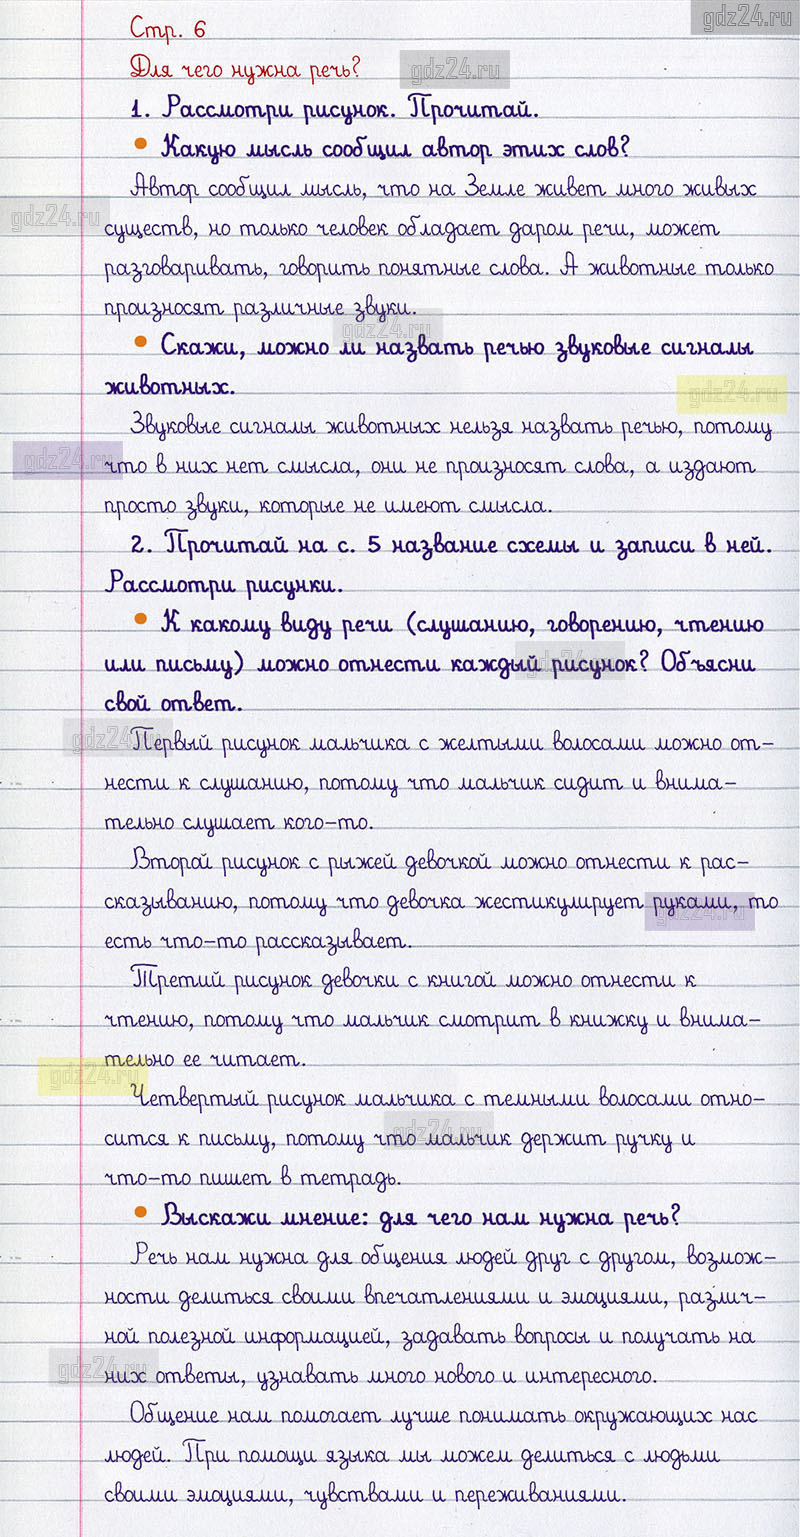 gdz24.ru
Стр. 6
Для чего нужна речь?
gdz24.ru
1. Рассмотри рисунок. Прочитай.
• Какую мысль сообщил автор этих слов?
Автор сообщил мысль, что на Земле живет много живых
gdz24.ru
существ, но только человек обладает даром речи, может
разговаривать, говорить понятные слова. А животные только
произносят различные звуки.
gdz24.ru
• Скажи, можно ли назвать речью звуковые сигналы
животных.
gdz24.ru
Звуковые сигналы животных нельзя назвать речью, потому
gdz24.ru
что в них нет смысла, они не произносят слова, а издают
просто звуки, которые не имеют смысла.
2. Прочитай на с. 5 название схемы и записи в ней.
Рассмотри рисунки.
• К какому виду речи (слушанию, говорению, чтению
или письму) можно отнести каждый рисунок? Объясни
gdz24.ru
свой ответ.
gdz24.ru
Первый рисунок мальчика с желтыми волосами можно от-
нести к слушанию, потому что мальчик сидит и внима-
тельно слушает кого-то.
Второй рисунок с рыжей девочкой можно отнести к рас-
сказыванию, потому что девочка жестикулирует руками, то
gdz24.ru
есть что-то рассказывает.
Третий рисунок девочки с книгой можно отнести к
чтению, потому что мальчик смотрит в книжку и внима-
тельно ее читает.
gdz24.ru
Четвертый рисунок мальчика с темными волосами отно-
сится к письму, потому что мальчик держит ручку и
gdz24.ru
что-то пишет в тетрадь.
• Выскажи мнение: для чего нам нужна речь?
Речь нам нужна для общения людей друг с другом, возмож-
ности делиться своими впечатлениями и эмоциями, различ-
ной полезной информацией, задавать вопросы и получать на
gdz24.ru
них ответы, узнавать много нового и интересного.
Общение нам помогает лучше понимать окружающих нас
людей. При помощи языка мы можем делиться с людьми
своими эмоциями, чувствами и переживаниями.